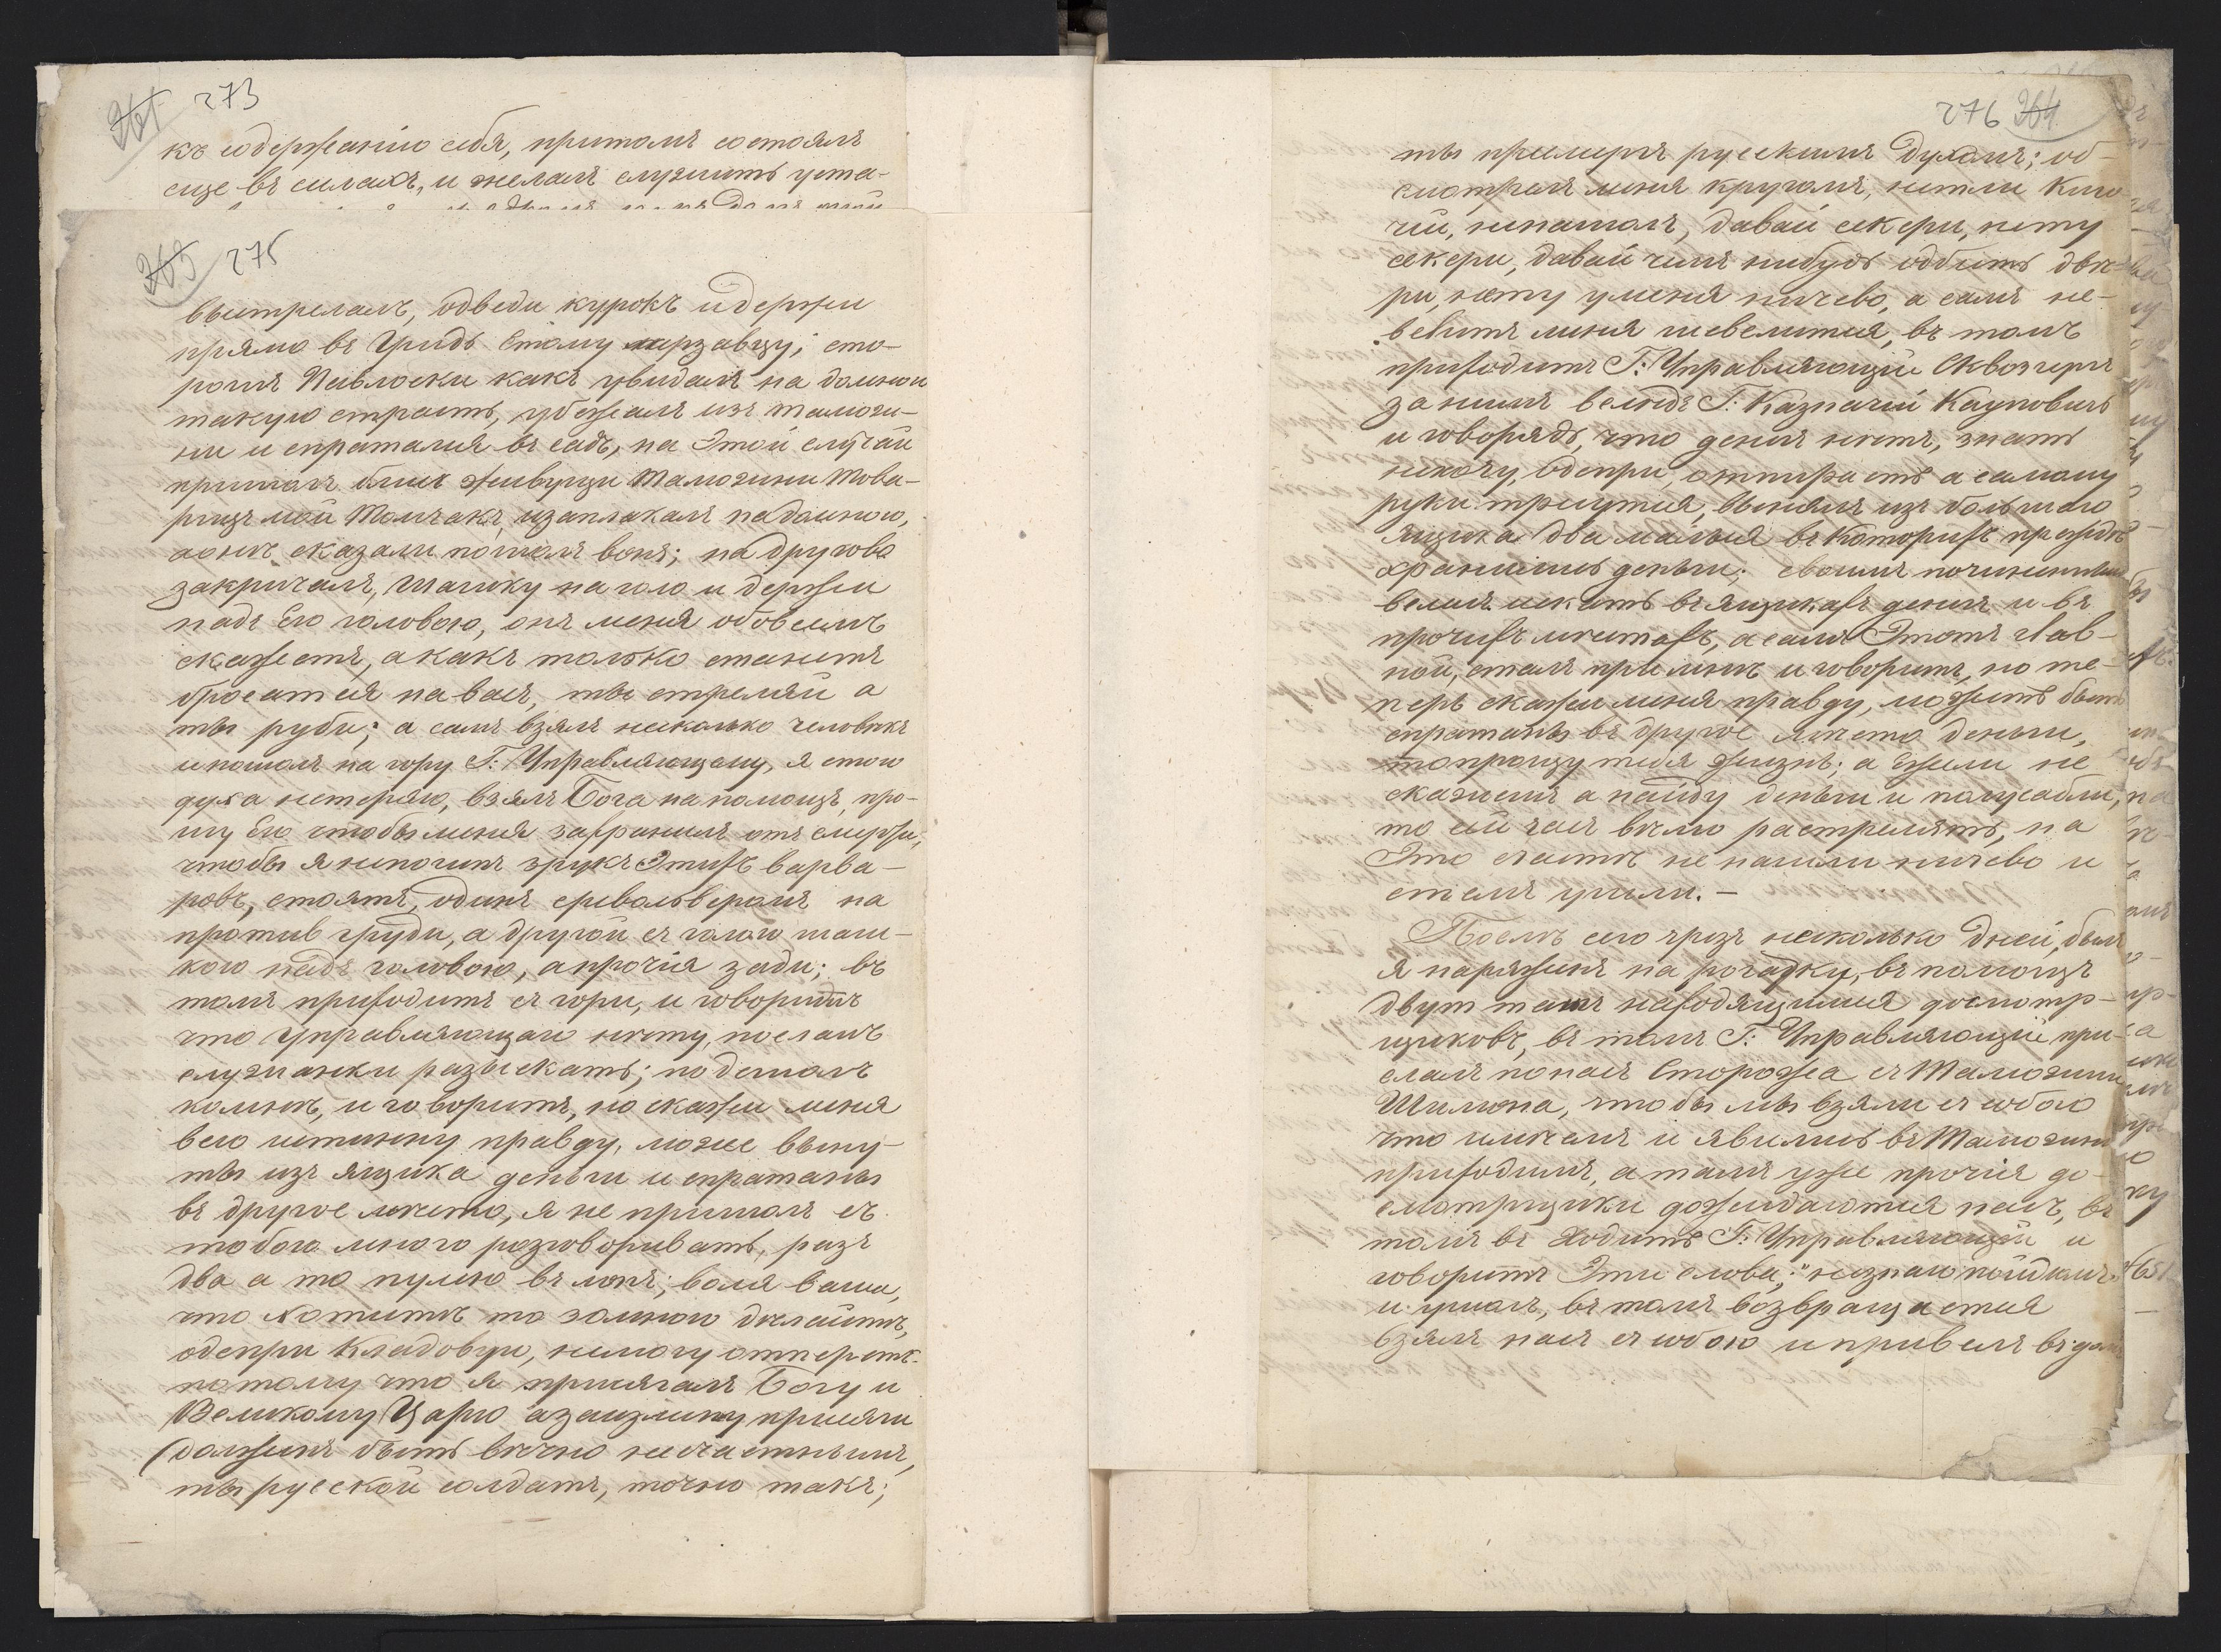 261 273
къ содержанію себя, притомъ состоялъ
еще въ силахъ, и желалъ служить уста-
263 275
выстрелалъ, одведи курокъ идержи
прямо въ Грудь Етому мерзавцу; сто-
рожъ Павлоски какъ увидалъ на домною
такую страсть, убежалъ изъ таможи-
ни и спраталия въ садъ, на Этой случай
пришолъ блис живущи Таможини Това-
рищъ мой Толчакъ, изаплакалъ надомною,
аонъ сказали пошолъ вонъ; на другова
закричалъ, шашку на голо и держи
надъ Его головою, онъ меня обовсемъ
скажетъ, а какъ только станетъ
бросатся на васъ, ты стреляй а
ты руби; а самъ взялъ несколько человекъ
ипошолъ на гору Г: Управляющему, я етого
духа нетеряю, взялъ Бога на помощъ, про-
шу Его чтобы меня захранилъ отъ смерти,
чтобы я непогипъ зрукъ Этихъ варва-
ровъ, стоятъ, одинъ среволвероомъ на
против груди, а другой съ голою шаш-
кою надъ головою, апрочія зади; въ
томъ приходитъ съ гори, и говоридъ
что Управляющаго нету, послалъ
служанки разыскать; подешолъ
комне, и говоритъ, но скажи меня
всю истинну правду, може выну-
ты изъ ящика деньги и спратаны
въ другое место, я не пришолъ съ
тобою много розговоривать, разъ
два а то пулю въ лопъ; воля ваша,
что хотитъ то замною делайтъ,
одепри Кладовую, немогу отперетъ
потому что я присягалъ Богу и
Великому Царю азаизмену присяги
долженъ быть вечно несчастнымъ,
ты русской солдатъ, точно такъ;
276 264
ты преширъ рускимъ Духомъ; об-
смотрелъ меня кругомъ, нетли Клю-
чий, ненашолъ, давай секери, нету
секери, давай чемъ нибудь одбить две-
ри, нету уменя ничево, а самъ не-
велитъ меня шевелится, въ томъ
приходитъ Г: Управляющий Сквозгерт
заними вследъ Г: Казначій Кауновичъ
и говорядъ, что денегъ нетъ, знать
нехочу, одепри, отпираетъ а самому
руки трясутся, вынялъ изъ большаго
ящика два малыя въ Которыхъ прежде
хранились деньги; своимъ починенным
велилъ искать въ ящикахъ денегъ и въ
прочихъ местахъ, асамъ Этотъ глав-
ной, сталъ при мне и говоритъ, но те-
перь скажи меня правду, можитъ быть
спратаны въ другое место деньги,
топрощу тебя жизнь; а Ежели не
скажешъ а найду деньги и полусабли,
то сей часъ велю растрелять, на
Это счасте не нашли ничево и
стемъ ушли. —
После сего чрозъ несколько дней, былъ
я наряженъ на рогадку, въ помощъ
двум тамъ находящимся досмотр-
щиковъ, въ томъ Г: Управляющій при-
слалъ понасъ Сторожа съ Таможини
Шимона, чтобы мы взяли съ собою
что имеемъ и явились въ Таможин
приходимъ, атамъ уже прочія до-
смотрщики дожидаются насъ, въ
томъ въ Ходитъ Г: Управляющій и
говоритъ Эти слова; "незнаю пойдемъ
и ушолъ, въ томъ возвращается
взялъ насъ съ собою ипривелъ въ дом